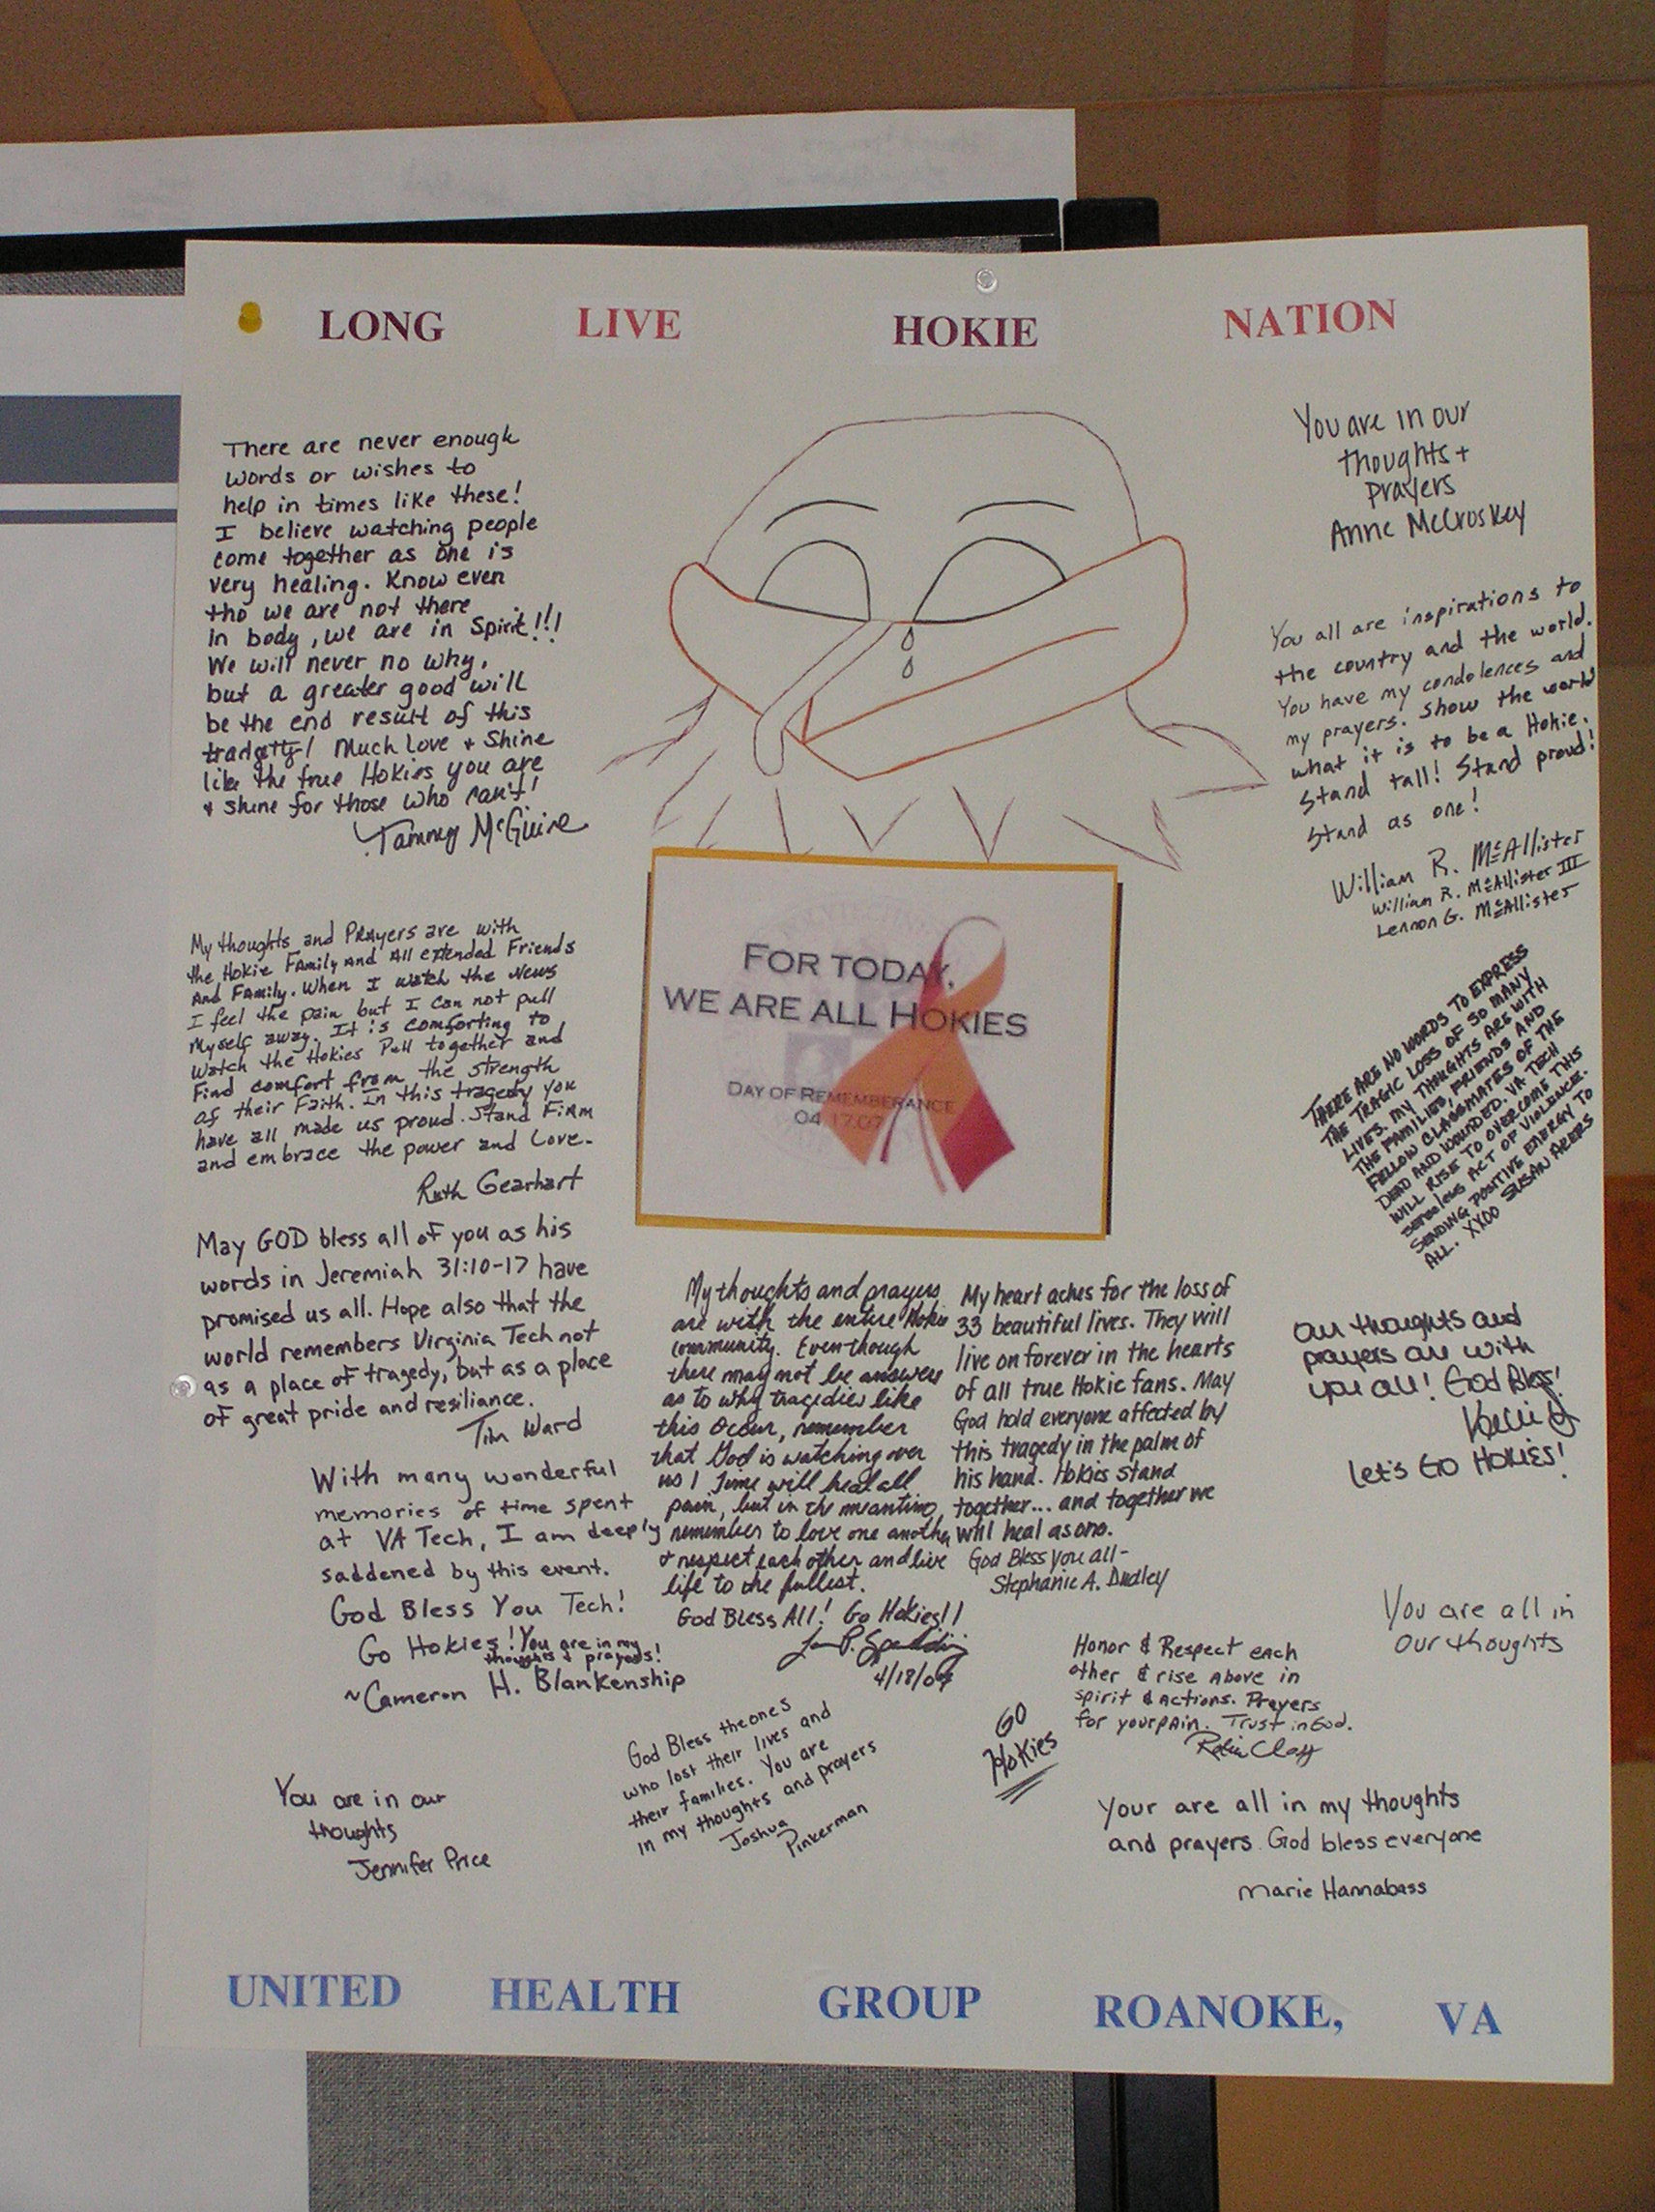 LONG LIVE HOKIE NATION
There are never enough
words or wishes to
help in times like these!
I believe watching people
come together as one is
very healing. Know even
tho we are not there
in body, we are in Spirit!!!
We will never no why,
but a greater good will
be the end result of this
tradgetty! Much Love + Shine
like the true Hokies you are
+ shine for those who can't!
Tammy McGuire
My thoughts and Prayers are with
the Hokie Family And All extended Friends
And Family. When I watch the News
I feel the pain but I can not pull
Myself away. It is comforting to
watch the Hokies Pull together and
Find comfort from the strength
of their Faith. In this tragedy you
have all made us proud. Stand Firm
and embrace the power and Love.
Ruth Gearhart
May GOD bless all of you as his
words in Jeremiah 31:10-17 have
promised us all. Hope also that the
world remembers Virginia Tech not
as a place of tragedy, but as a place
of great pride and resiliance.
Tim Ward
With many wonderful
memories of time spent
at VA Tech, I am deeply
saddened by this event.
God Bless You Tech!
Go Hokies! You are in my
thoughts & prayers!
~Cameron H. Blankenship
You are in our
thoughts
Jennifer Price
FOR TODAY,
WE ARE ALL HOKIES
DAY OF REMEMBERANCE
04.17.07
My thoughts and prayers
are with the entire Hokie
community. Even though
there may not be answers
as to why tragedies like
this occur, remember
that God is watching over
us! Time will heal all
pain, but in the meantime,
remember to love one another
+ respect each other and live
life to the fullest.
God Bless All! Go Hokies!!
4/18/07
God Bless the ones
who lost their lives and
their families. You are
in my thoughts and prayers
Joshua
Pinkerman
My heart aches for the loss of
33 beautiful lives. They will
live on forever in the hearts
of all true Hokie fans. May
God hold everyone affected by
this tragedy in the palm of
his hand. Hokies stand
together... and together we
will heal as one.
God Bless you all-
Stephanie A. Dudley
GO
Hokies
Honor & Respect each
other & rise Above in
spirit & Actions. Prayers
for your pain. Trust in God.
Your are all in my thoughts
and prayers. God bless everyone
Marie Hannabass
You are in our
thoughts +
prayers
Anne McCroskey
You all are inspirations to
the country and the world.
You have my condolences and
my prayers. Show the world
what it is to be a Hokie.
Stand tall! Stand proud!
Stand as one!
William R. McAllister
William R. McAllister III
Lennon G. McAllister
THERE ARE NO WORDS TO EXPRESS
THE TRAGIC LOSS OF SO MANY
LIVES. MY THOUGHTS ARE WITH
THE FAMILIES, FRIENDS AND
FELLOW CLASSMATES OF THE
DEAD AND WOUNDED. VA TECH
WILL RISE TO OVERCOME THIS
senseless ACT OF VIOLENCE.
SENDING POSITIVE ENERGY TO
ALL. XXOO SUSAN AKERS
Our thoughts and
prayers are with
you all! God Bless!
Let's GO HOKIES!
You are all in
our thoughts
UNITED HEALTH GROUP ROANOKE, VA